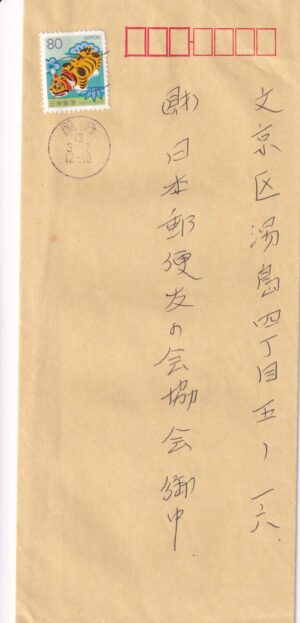 文京区湯島四丁目五ノ一六
財日本郵便友の会協会御中
80
NIPPON
日本郵便
国分
13
3 7
12-18